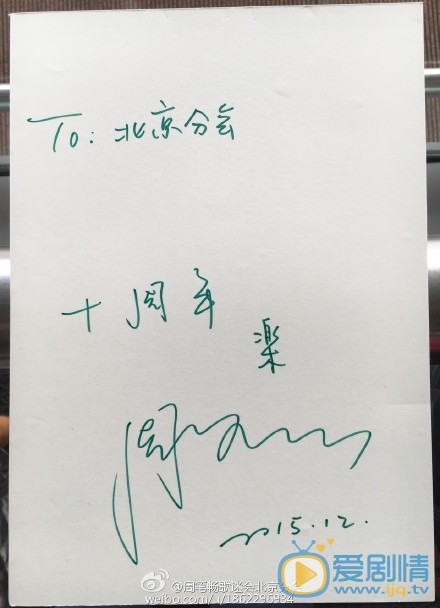 To: 北京分会
十周年
樂
周
2015.12.
@周笔畅歌迷会北京分会
weibo.com/u/1862296984
爱剧情
www.ijq.tv